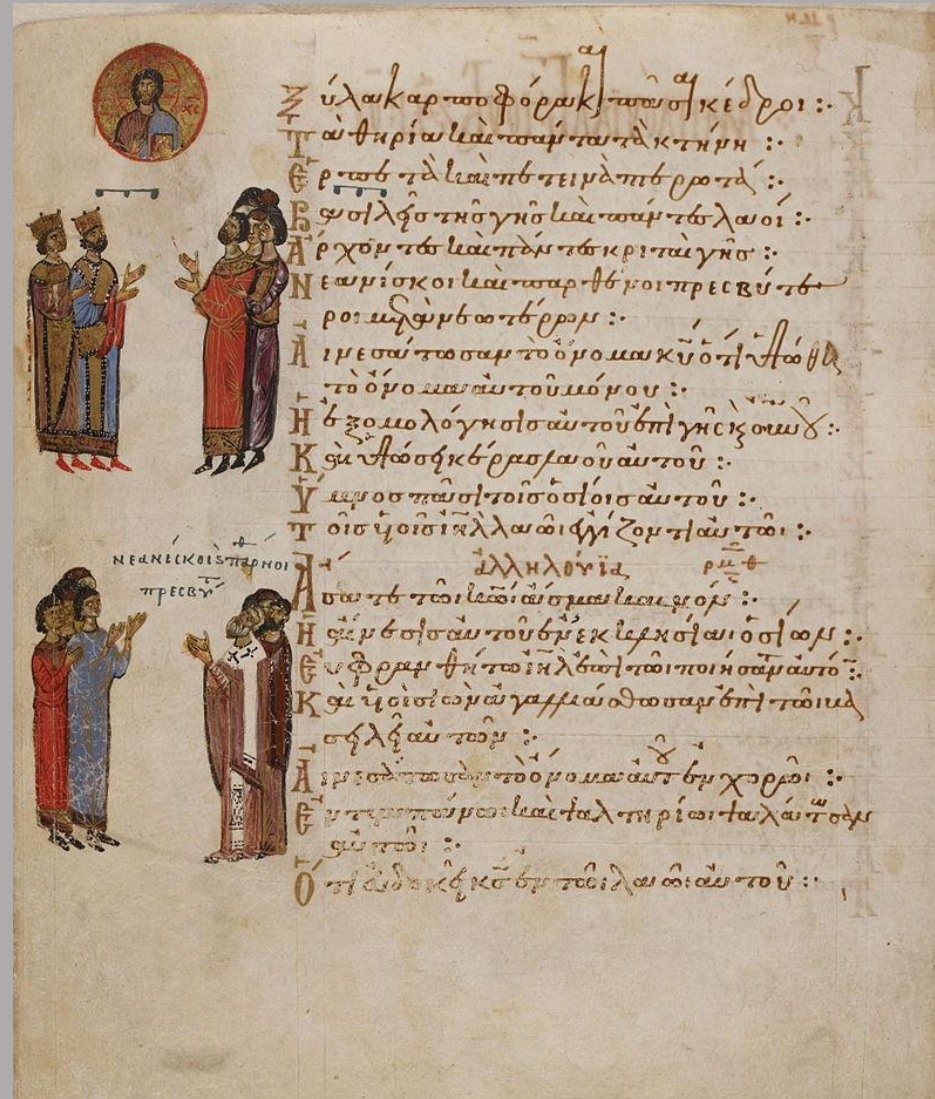 Ξύλα καρποφόρα κ πᾶσαι κέδροι :·
Τὰ θηρία καὶ πάντα τὰ κτήνη :·
Ἑρπετὰ καὶ πετεινὰ πτερωτά :·
Βασιλεῖς τῆς γῆς καὶ πάντες λαοί :·
Ἄρχοντες καὶ πάντες κριταὶ γῆς :·
Νεανίσκοι καὶ παρθένοι πρεσβύτε
ροι μετὰ νεωτέρων :·
Αἰνεσάτωσαν τὸ ὄνομα κυ ὅτι ὑψώθη
τὸ ὄνομα αὐτοῦ μόνου :·
Ἡ ἐξομολόγησις αὐτοῦ ἐπὶ γῆς κ ουνου :·
Καὶ ὑψώσει κέρας λαοῦ αὐτοῦ :·
Ὕμνος πᾶσι τοῖς ὁσίοις αὐτοῦ :·
Τοῖς υἱοῖς ιηλ λαῶι ἐγγίζοντι αὐτῶι :·
ΝΕΑΝΙΣΚΟΙ Σ ΠΑΡΘΝΟΙ
ΠΡΕΣΒΥΤ
ἀλληλούϊα ρμθ
Ἄσατε τῶι κωι ἆσμα καινόν :·
Ἡ αἴνεσις αὐτοῦ ἐν ἐκκλησίαι ὁσίων :·
Εὐφρανθήτω ιηλ ἐπὶ τῶι ποιήσαντι αὐτόν :·
Καὶ υἱοὶ σιὼν ἀγαλλιάσθωσαν ἐπὶ τῶι βα
σιλεῖ αὐτῶν :·
Αἰνεσάτωσαν τὸ ὄνομα αὐτοῦ ἐν χορῶι :·
Ἐν τυμπάνωι καὶ ψαλτηρίωι ψαλάτωσαν
αὐτῶι :·
Ὅτι εὐδοκεῖ κς ἐν τῶι λαῶι αὐτοῦ :·